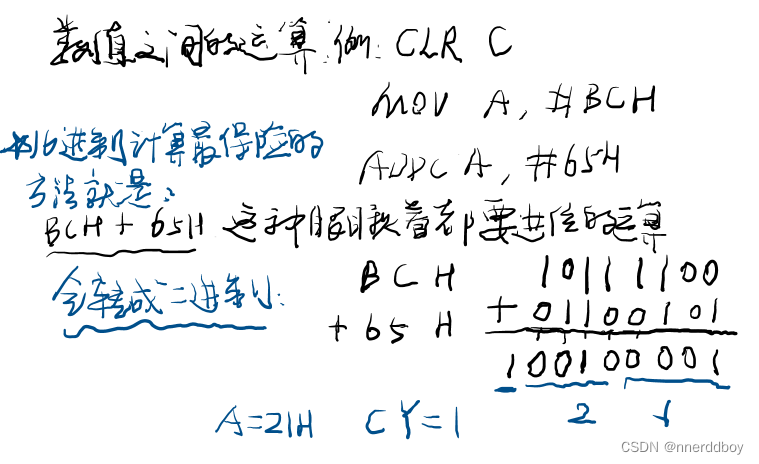 数值之间的运算.例: CLR C
MOV A, #BCH
ADDC A, #65H
16进制计算最保险的
方法就是:
BCH + 65H 这种眼瞅着都要进位的运算
全转成二进制:
BCH 10111100
+ 65 H + 01100101
1 0010 0001
2 1
A=21H CY=1
CSDN @nnerddboy